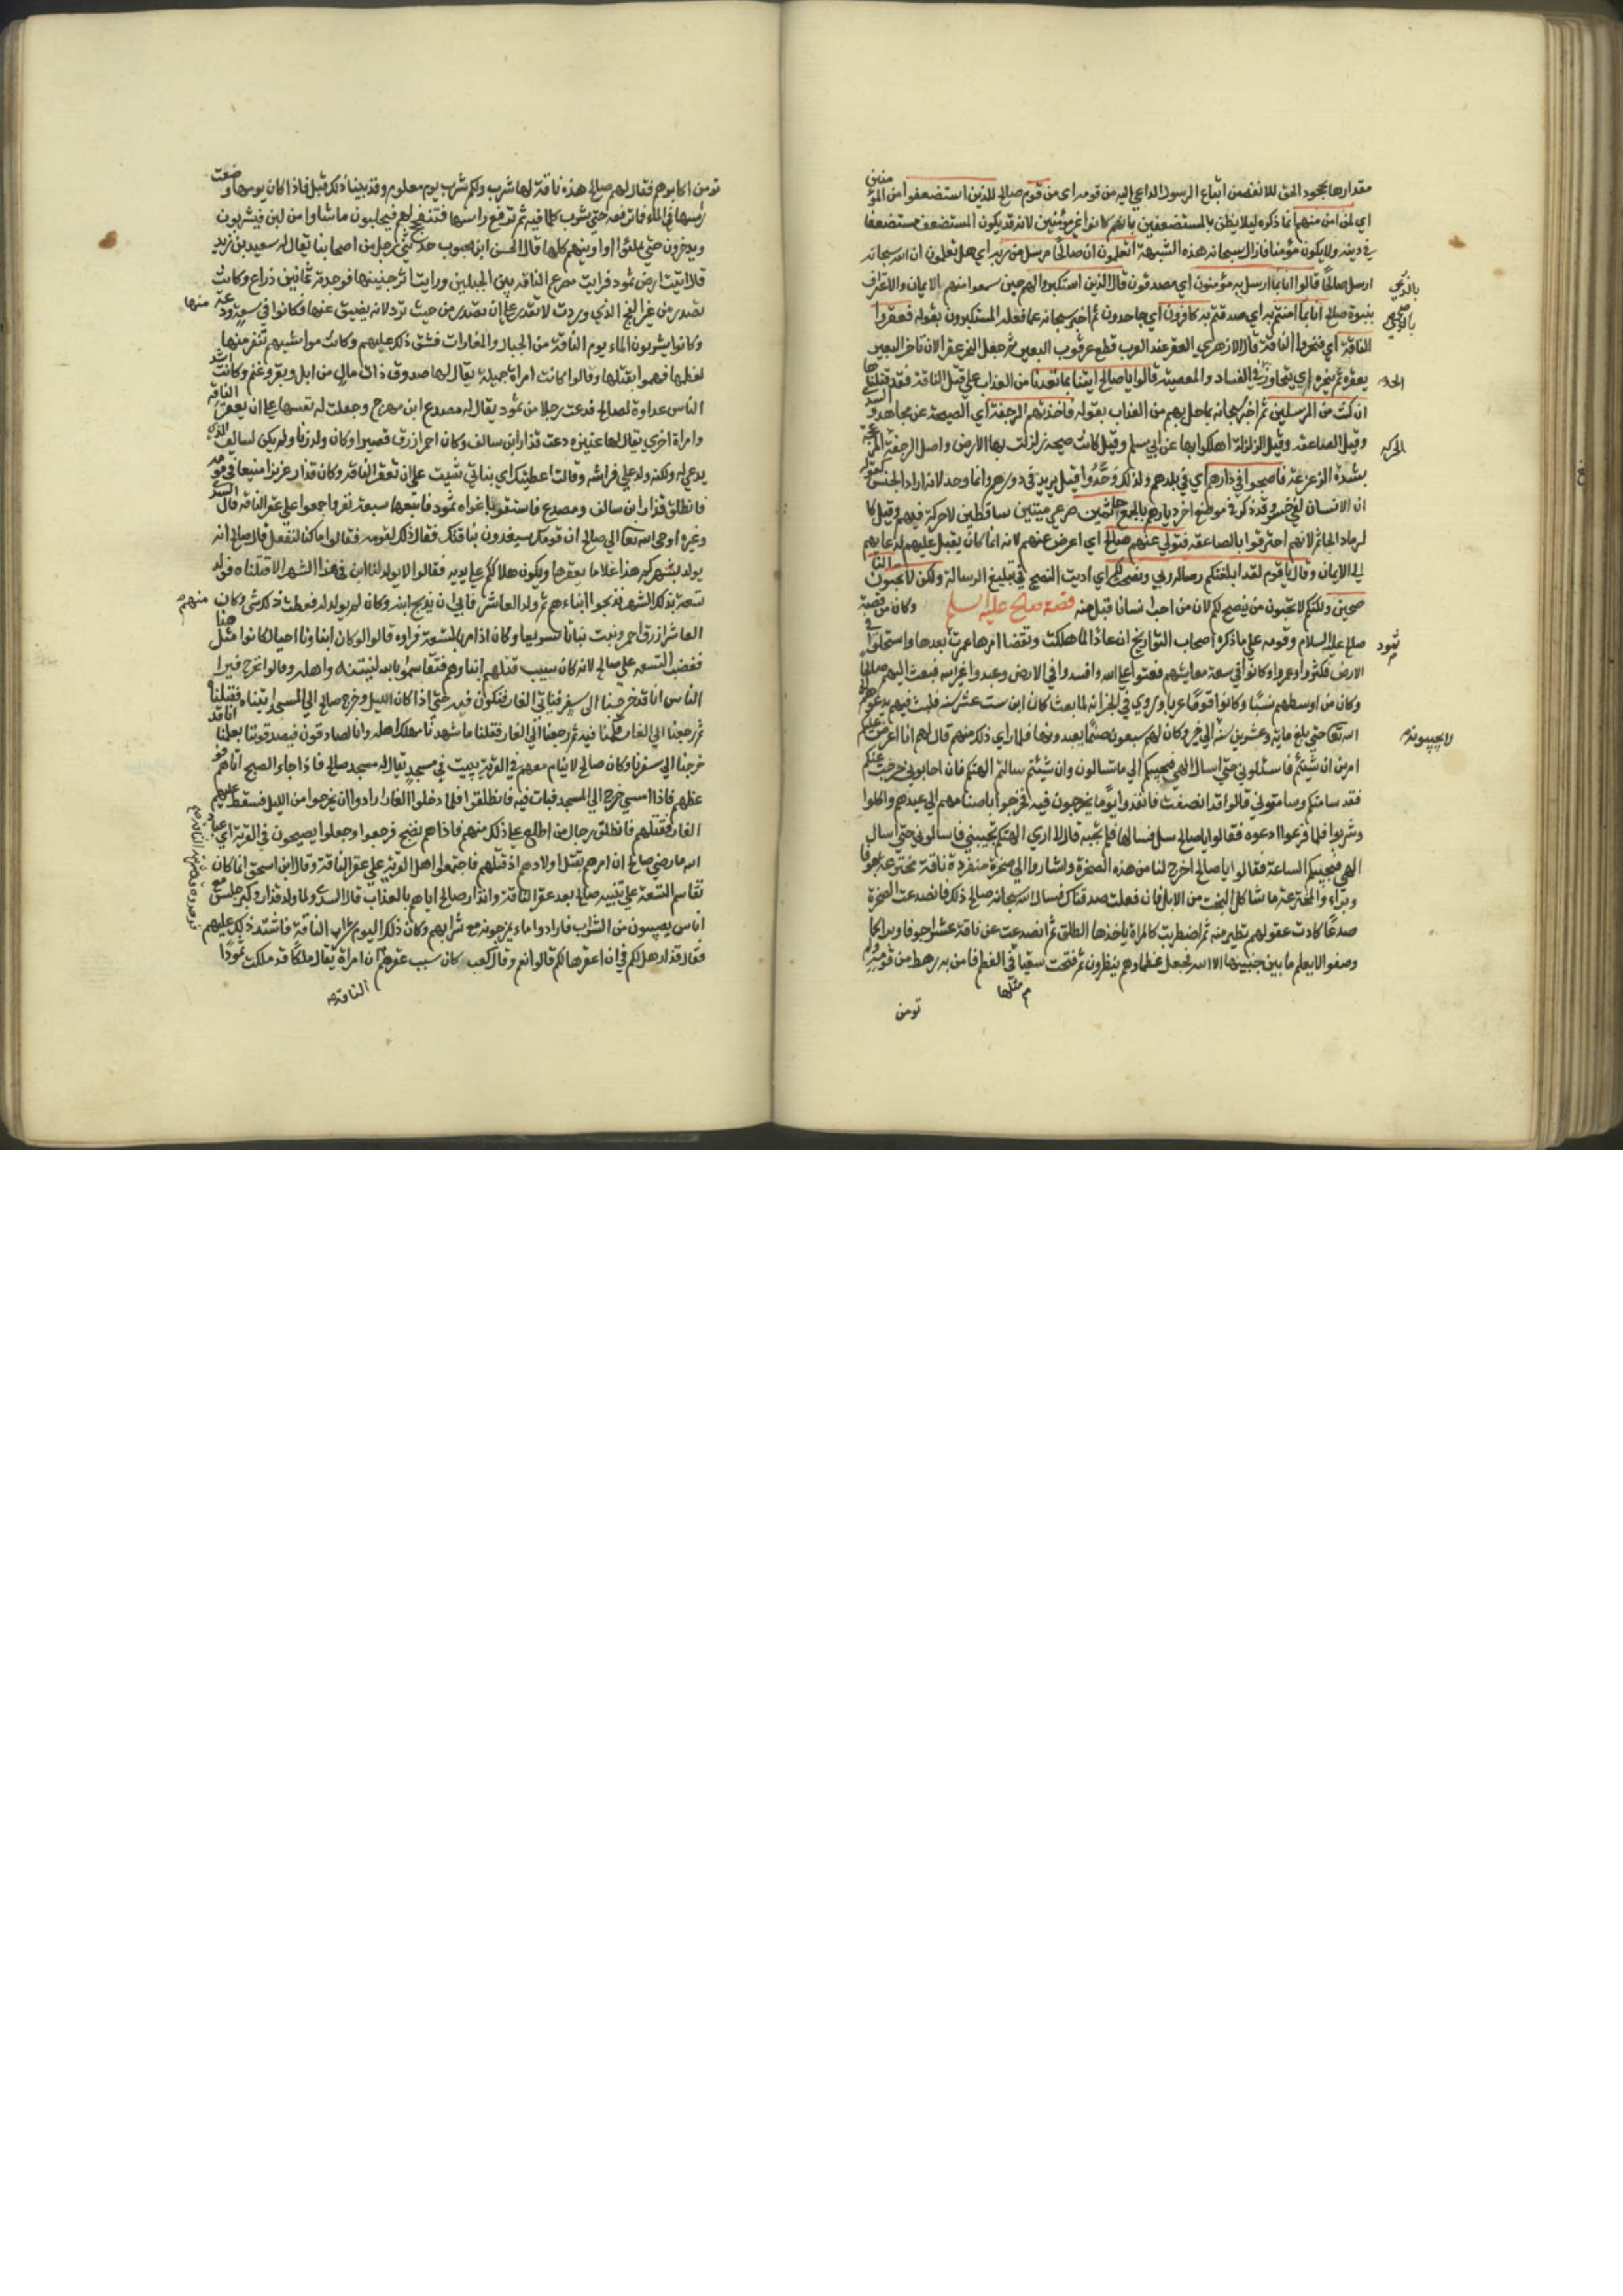 مقدارها بجحود الحق للانفة من اتباع الرسول الداعي اليه من قومه اي من قوم صالح للذين استضعفوا من المؤمنين
اي لمن امن منهم انما ذكره ليلا يظن بالمستضعفين بانهم كانوا غير مؤمنين لانه قد يكون المستضعف مستضعفا
في دينه ولا يكون مؤمنا فازال سبحانه هذه الشبهة اتعلمون ان صالحا مرسل من ربه اي هل تعلمون ان الله سبحانه
ارسل صالحا قالوا انا بما ارسل به مؤمنون اي مصدقون قال الذين استكبروا لهم حين سمعوا منهم الايمان والاعتراف
بنبوة صالح انا بالذي امنتم به اي صدقتم به كافرون اي جاحدون ثم اخبر سبحانه عما فعله المستكبرون بقوله فعقروا
الناقة اي فنحروا الناقة قال الازهري العقر عند العرب قطع عرقوب البعير ثم جعل النحر عقرا لان ناحر البعير
يعقره ثم ينحره اي يتجاوز الحد في الفساد والمعصية قالوا يا صالح ايتنا بما تعدنا من العذاب على قتل الناقة فقد قتلناها
ان كنت من المرسلين ثم اخبر سبحانه بما حل بهم من العذاب بقوله فاخذتهم الرجفة اي الصيحة عن مجاهد والسدي
وقيل الصاعقة وقيل الزلزلة اهلكوا بها عن ابي مسلم وقيل كانت صيحة زلزلت بها الارض واصل الرجفة الحركة المزعجة
بشدة الزعزعة فاصبحوا في دارهم اي في بلدهم ولذلك وحد وقيل يريد في دورهم وانما وحد لانه اراد الجنس كقوله
ان الانسان لفي خسر وقد ذكر في موضع اخر ديارهم بالجمع جاثمين صرعي ميتين ساقطين لا حركة فيهم وقيل كا
لرماد الجاثم لانهم احترقوا بالصاعقة فتولي عنهم صالح اي اعرض عنهم لانه انما كان يقبل عليهم لدعايهم
الي الايمان وقال يا قوم لقد ابلغتكم رسالة ربي ونصحت لكم اي اديت النصح في تبليغ الرسالة ولكن لا تحبون النا
صحين ولكنكم لا تحبون من ينصح لكم لان من احب انسانا قبل منه قصة صالح عليه السلم وكان من قصة
صالح عليه السلام وقومه علي ما ذكره اصحاب التواريخ ان عادا لما هلكت وتقضا امرها عمرت ثمود بعدها واستخلفوا في
الارض فكثروا وعمروا وكانوا في سعة معايشهم فعتوا علي الله وافسدوا في الارض وعبدوا غير الله فبعث اليهم صالحا
وكان من اوسطهم نسبا وكانوا قوما عربا وروي في الخبر انه لما بعث كان ابن ست عشر سنة فلبث فيهم يدعوهم الي
الله تعا حتي بلغ ماية وعشرين سنة لا يجيبونه الي خير وكان لهم سبعون صنما يعبدونها فلما راي ذلك منهم قال لهم انا اعرض عليكم
امرين ان شيتم فاسئلوني حتي اسال الهي فيجيبكم الي ما تسالون وان شيتم سالت الهتكم فان اجابوني خرجت عنكم
فقد سامتكم وسامتموني قالوا قد انصفت فاتعدوا يوما يخرجون فيه فخرجوا باصنامهم الي عيدهم واكلوا
وشربوا فلما فرغوا دعوه فقالوا يا صالح سل فسالها فلم تجبه قال لا اري الهتكم تجيبني فاسالوني حتي اسال
الهي فيجيبكم الساعة فقالوا يا صالح اخرج لنا من هذه الصخرة واشاروا الي صخرة منفردة ناقة مخترجة جوفا
وبراء والمخترجة ما شاكل البخت من الابل فان فعلت صدقناك فسال الله سبحانه صالح ذلك فانصدعت الصخرة
صدعا كادت عقولهم تطير منه ثم اضطربت كالمراة ياخذها الطلق ثم انصدعت عن ناقة عشرا جوفا وبرا كما
وصفوا لا يعلم ما بين جنبيها الا الله عظما وهم ينظرون ثم نتجت سقبا مثلها في العظم فامن به رهط من قومه ولم
تومن
بالذي
الحد
الحركة
ثمود
لا يجيبونه
تومن اكابرهم فقال لهم صالح هذه ناقة لها شرب ولكم شرب يوم معلوم وقد بينا ذلك قبل فاذا كان يومها وضعت
راسها في الماء فما ترفعه حتي تشرب كلما فيه ثم ترفع راسها فتتفحج لهم فيحلبون ما شاوا من لبن فيشربون
ويدخرون حتي يملئوا اوانيهم كلها قال الحسن ابن محبوب حدثني رجل من اصحابنا يقال له سعيد بن يزيد
قال اتيت ارض ثمود فرايت مصرع الناقة بين الجبلين ورايت اثر جنبيها فوجدته ثمانين ذراع وكانت
تصدر من غير الفج الذي وردت لا تقدر علي ان تصدر من حيث ترد لانه يضيق عنها فكانوا في سعة ودعة منها
وكانوا يشربون الماء يوم الناقة من الجبال والمغارات فشق ذلك عليهم وكانت مواشيهم تنفر منها
لعظمها فهموا بقتلها وقالوا كانت امراة جميلة يقال لها صدوف ذات مال من ابل وبقر وغنم وكانت اشد
الناس عداوة لصالح فدعت رجلا من ثمود يقال له مصدع ابن مهرج وجعلت له نفسها علي ان يعقر الناقة
وامراة اخري يقال لها عنيزه دعت قذار ابن سالف وكان احمر ازرق قصيرا وكان ولد زنا ولم يكن لسالف الذي
يدعي له ولكنه ولد علي فراشه وقالت اعطيتك اي بناتي شيت علي ان تعقر الناقة وكان قذار عزيزا منيعا في قومه
فانطلق قذار ابن سالف ومصدع فاستغويا غواه ثمود فاتبعهما سبعة نفر واجمعوا علي عقر الناقة قال السدي
وغيره اوحي الله تعا الي صالح ان قومك سيعقرون ناقتك فقال ذلك لقومه فقالوا ما كنا لنفعل قال صالح انه
يولد بشهركم هذا غلاما يعقرها ويكون هلاككم علي يديه فقالوا لا يولد لنا ابن في هذا الشهر الا قتلناه فولد
تسعة بذلك الشهر فذبحوا ابناءهم ثم ولد العاشر فابي ان يذبح ابنه وكان لم يولد له قبل ذلك شي وكان منهم
العاشر ازرق احمر ونبت نباتا سريعا وكان اذا مر بالتسعة فراوه قالوا لو كان ابناونا احيا لكانوا مثل هذا
فغضب التسعة علي صالح لانه كان سبب قتلهم ابناءهم فتقاسموا بالله لنبيتنه واهله وقالوا نخرج فيرا
الناس انا قد خرجنا الي سفر فناتي الغار فنكون فيه حتي اذا كان الليل وخرج صالح الي المسجد اتيناه فقتلناه
ثم رجعنا الي الغار فكنا فيه ثم رجعنا الي الغار فقلنا ما شهدنا مهلك اهله وانا لصادقون فيصدقوننا يعلمون انا قد
خرجنا الي سفرنا وكان صالح لا ينام معهم في القرية يبيت في مسجد يقال له مسجد صالح فاذا جاء الصبح اتاهم فو
عظهم فاذا امسي خرج الي المسجد فبات فيه فانطلقوا فلما دخلوا الغار ارادوا ان يخرجوا من الليل فسقط عليهم
الغار فقتلهم فانطلق رجال ممن اطلع علي ذلك منهم فاذا هم رضخ فرجعوا وجعلوا يصيحون في القرية اي عباد
الله ما رضي صالح ان امرهم بقتل اولادهم اذ قتلهم فاجتمعوا اهل القرية علي عقر الناقة وقال ابن اسحق انما كان
تقاسم التسعة علي تبييت صالح بعد عقر الناقة وانذار صالح اياهم بالعذاب قال السدي ولما ولد قذار وكبر جلس مع
اناس يصيبون من الشراب فارادوا ماء يمزجونه مع شرابهم وكان ذلك اليوم شرب الناقة فاشتد ذلك عليهم
فقال قذار هل لكم في ان اعقرها لكم قالوا نعم وقال كعب كان سبب عقرهم الناقة ان امراة يقال ملكا قد ملكت ثمودا